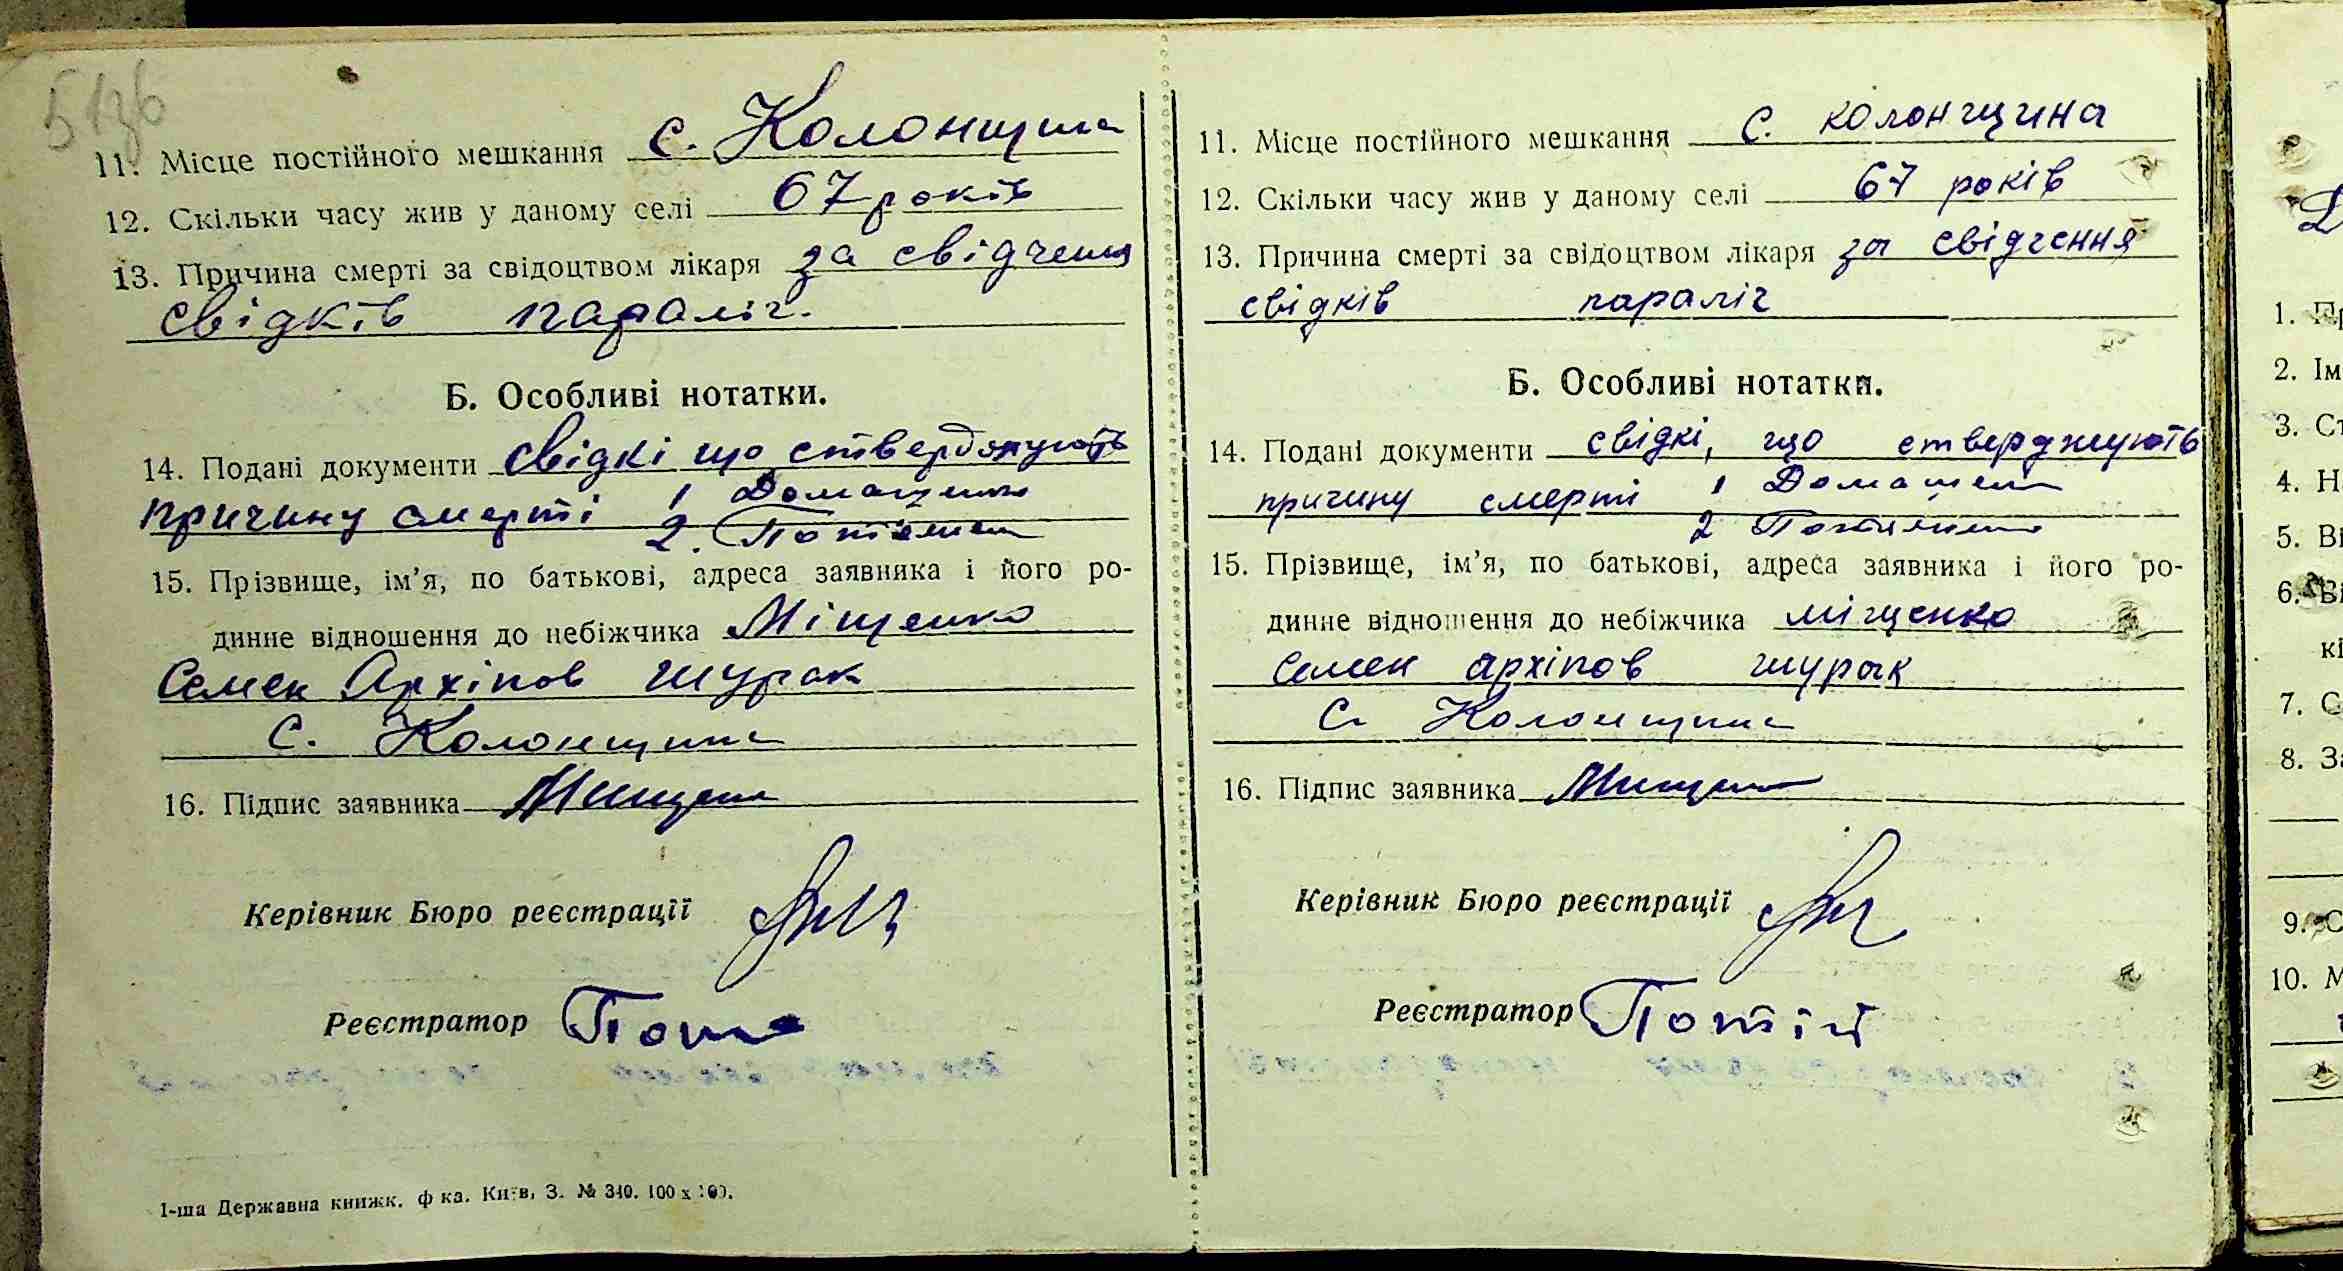 51зв
11. Місце постійного мешкання с. Колонщина
12. Скільки часу жив у даному селі 67 років
13. Причина смерті за свідоцтвом лікаря за свідчення
свідків параліч.
Б. Особливі нотатки.
14. Подані документи свідкі що стверджують
причину смерті 1 Домашенко
2.
15. Прізвище, ім’я, по батькові, адреса заявника і його ро-
динне відношення до небіжчика Міщенко
Семен Архіпов шурак
с. Колонщина
16. Підпис заявника
Керівник Бюро реєстрації
Реєстратор
1-ша Державна книжк. ф ка. Київ, З. № 340. 100 x 100.
11. Місце постійного мешкання с. колонщина
12. Скільки часу жив у даному селі 67 років
13. Причина смерті за свідоцтвом лікаря за свідчення
свідків параліч
Б. Особливі нотатки.
14. Подані документи свідкі, що стверджують
причину смерті 1 Домашенко
2
15. Прізвище, ім’я, по батькові, адреса заявника і його ро-
динне відношення до небіжчика міщенко
Семен архіпов шурак
с. Колонщина
16. Підпис заявника
Керівник Бюро реєстрації
Реєстратор Потій
1.
2. Ім
3. Ст
4. Н
5. Ві
6. Ві
кі
7. С
8. За
9. С
10. М